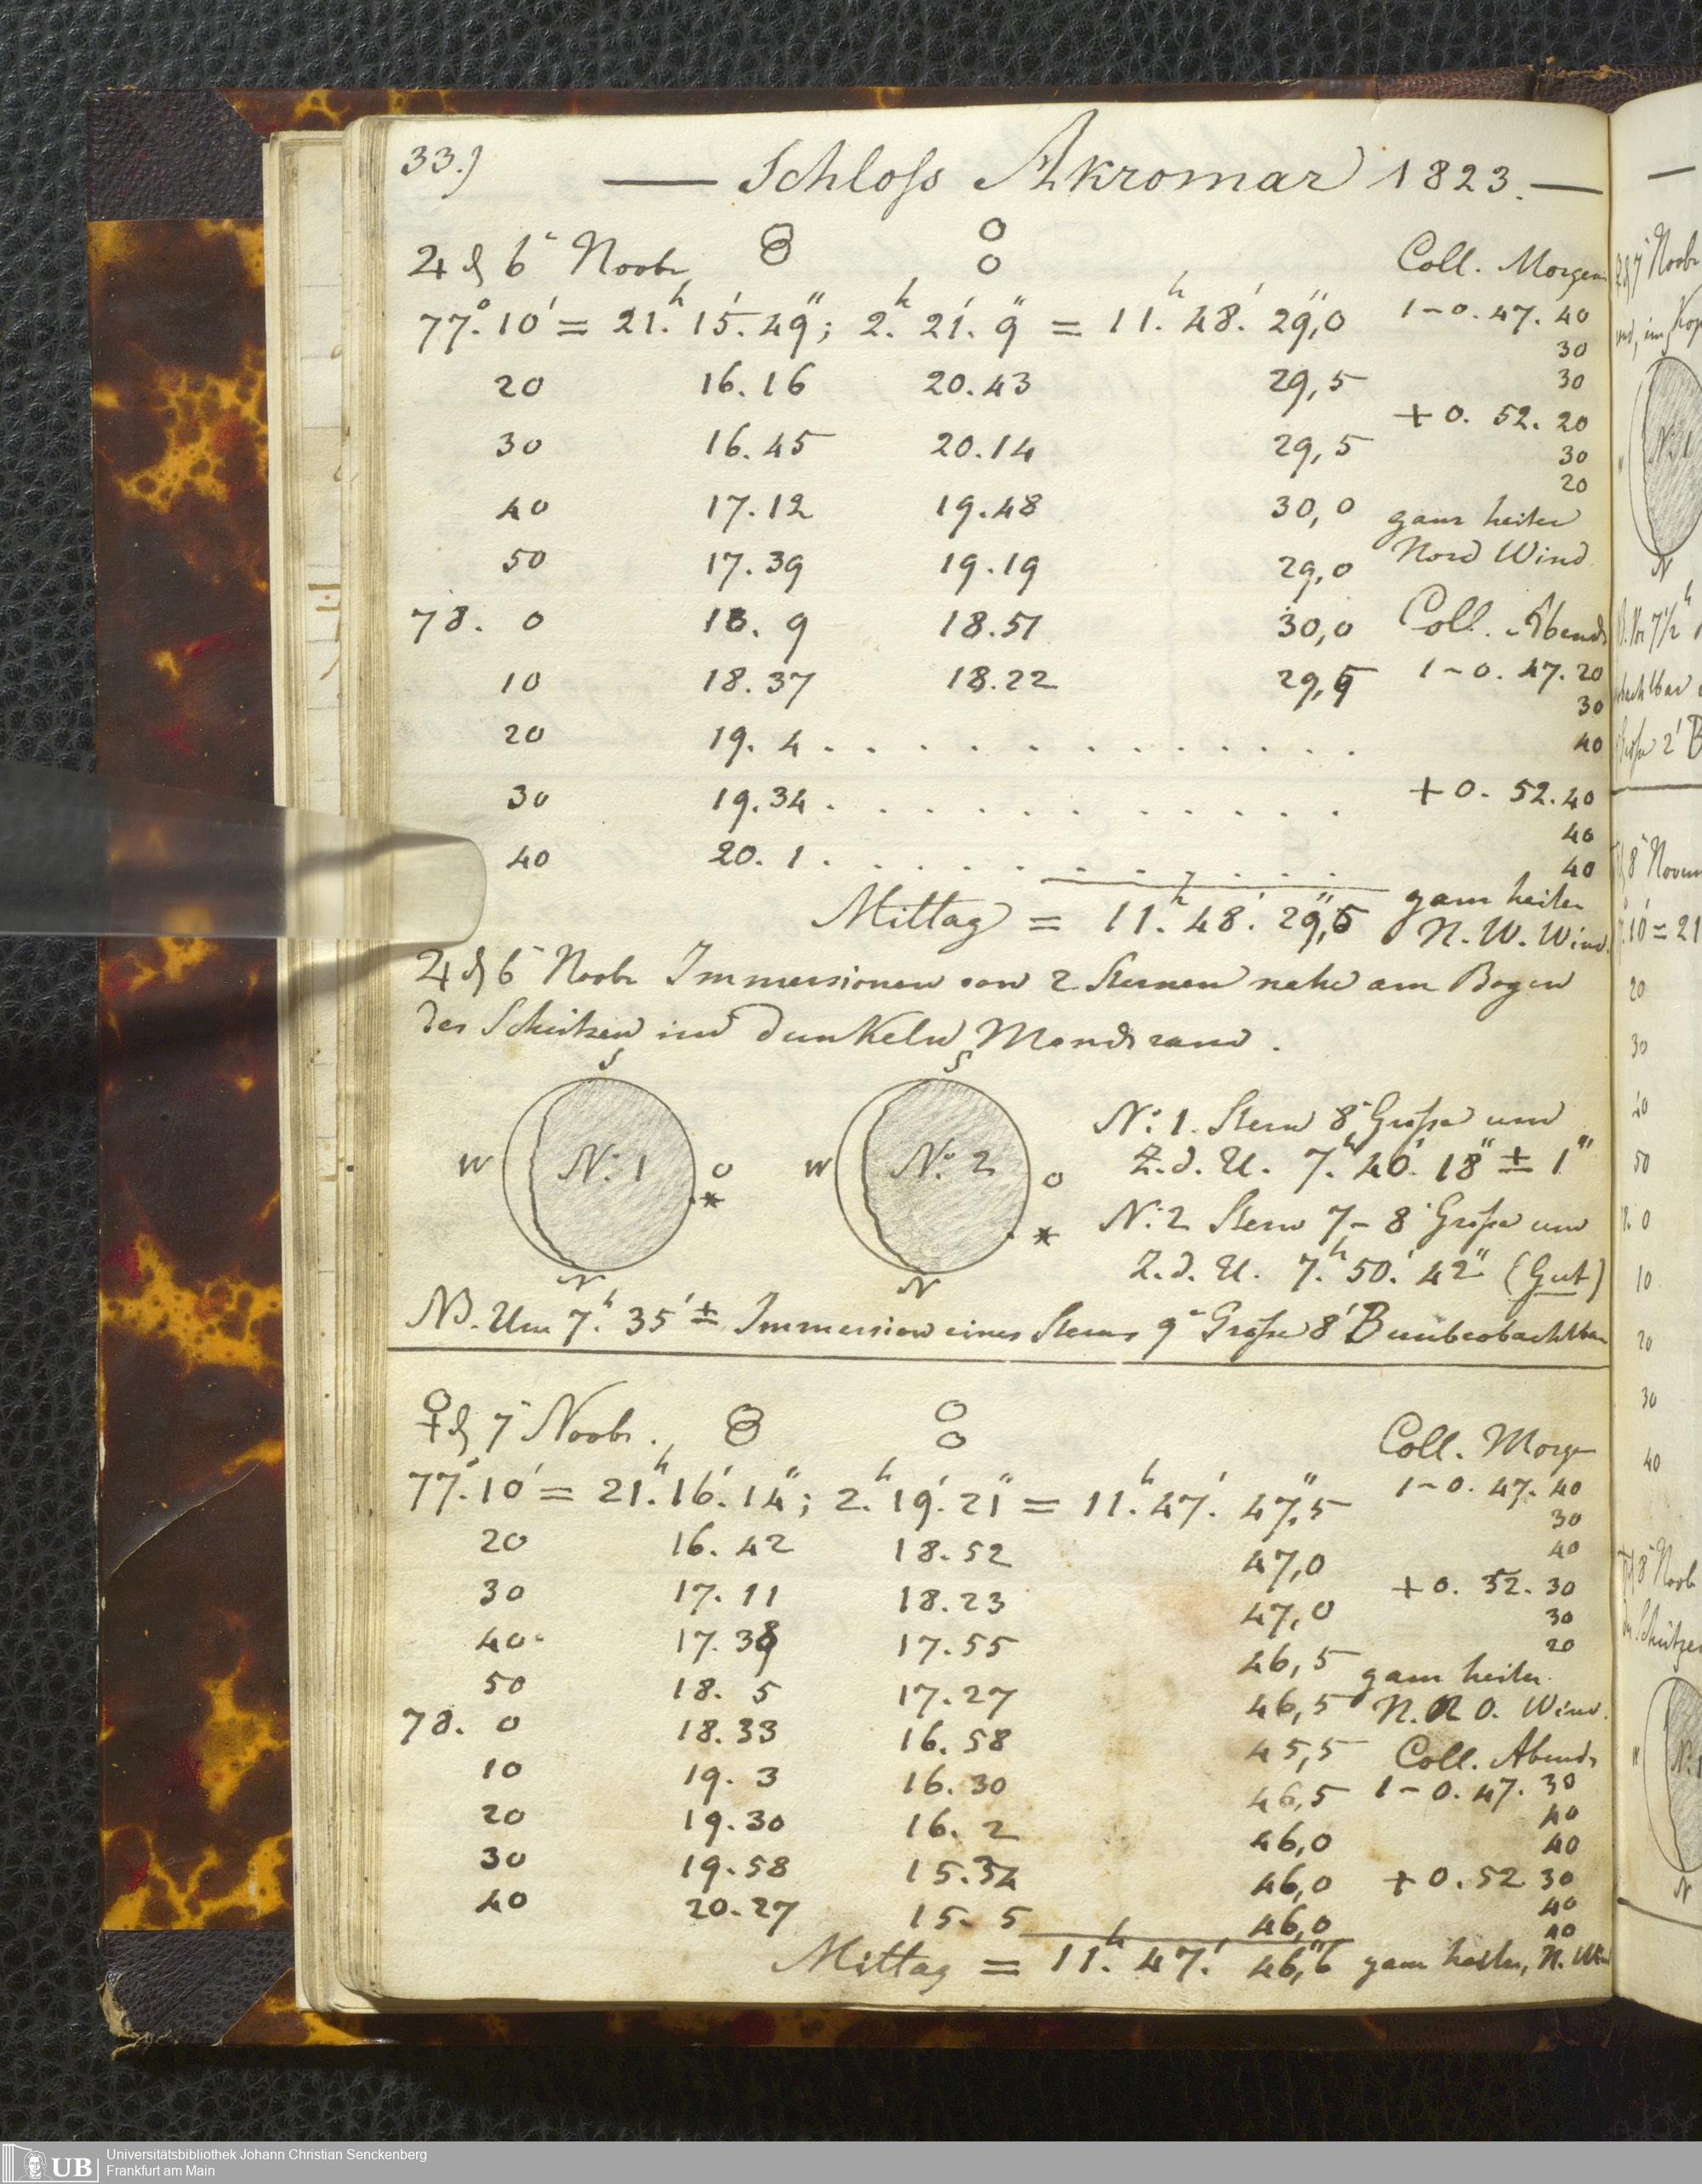 33.)
— Schloss Akromar 1823. —
♃ d 6ᵗ Novbr
Coll. Morgen
77.° 10′ = 21.ʰ 15.′ 49″; 2.ʰ 21.′ 9″ = 11.ʰ 48.′ 29,″0
1 – 0. 47. 40
30
20 16.16 20.43 29,5
30
+ 0. 52. 20
30 16.45 20.14 29,5
30
20
40 17.12 19.48 30,0
ganz heiter
50 17.39 19.19 29,0
Nord Wind
78. 0 18. 9 18.51 30,0
Coll. Abends
10 18.37 18.22 29,5
1 – 0. 47. 20
30
20 19. 4 . . . . . . . . . . . .
40
30 19.34 . . . . . . . . . . . .
+ 0. 52. 40
40
40 20. 1 . . . . . . . . . . . .
40
Mittag = 11.ʰ 48.′ 29,″5
ganz heiter
N. W. Wind.
♃ d 6ᵗ Novbr Immersionen von 2 Sternen nahe am Bogen
des Schützen im dunkeln Mondsrand.
S
S
W N:1 O
*
N
W N:2 O
*
N
N:1. Stern 8ᵗ Größe um
Z.d.U. 7.ʰ 40.′ 18″ ± 1″
N:2 Stern 7–8 Größe um
Z.d.U. 7.ʰ 50.′ 42″ (Gut)
NB. Um 7.ʰ 35′ ± Immersion eines Sterns 9ᵗ Größe 8′ B unbeobachtbar
♀ d 7ᵗ Novbr.
Coll. Morgen
77.° 10′ = 21.ʰ 16.′ 14″; 2.ʰ 19.′ 21″ = 11.ʰ 47.′ 47,″5
1 – 0. 47. 40
30
20 16.42 18.52 47,0
40
30 17.11 18.23 47,0
+ 0. 52. 30
30
40 17.38 17.55 46,5
20
ganz heiter.
50 18. 5 17.27 46,5
N. N O. Wind.
78. 0 18.33 16.58 45,5
Coll. Abends
10 19. 3 16.30 46,5
1 – 0. 47. 30
40
20 19.30 16. 2 46,0
40
30 19.58 15.34 46,0
+ 0. 52 30
40
40 20.27 15. 5 46,0
40
Mittag = 11.ʰ 47.′ 46,″6
ganz heiter, N. Wind
Universitätsbibliothek Johann Christian Senckenberg
Frankfurt am Main
UB